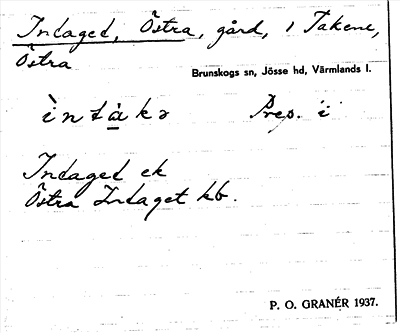 Intaget, Östra, gård, i Takene,
Östra
Brunskogs sn, Jösse hd, Värmlands l.
Prep. i
Intaget ek
Östra Intaget kb.
P. O. GRANÉR 1937.